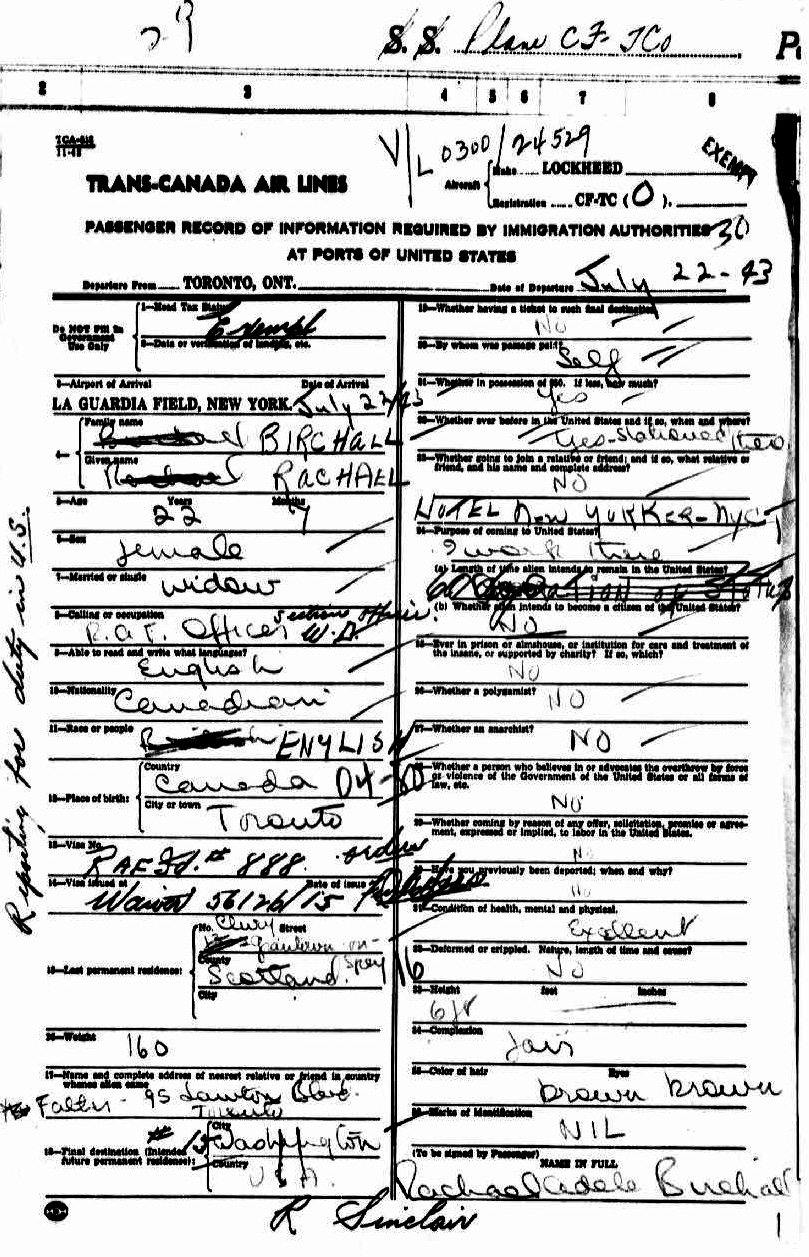 29
S. S. Plane CF-TCO
2 3 4 5 6 7 8
TCA-
11-42
V/L 0300/24529
EXEMPT
TRANS-CANADA AIR LINES
Aircraft
Make LOCKHEED
Registration CF-TC (O).
PASSENGER RECORD OF INFORMATION REQUIRED BY IMMIGRATION AUTHORITIES 30
AT PORTS OF UNITED STATES
Departure From TORONTO, ONT.
Date of Departure July 22-43
Do NOT Fill In Government Use Only
1—Head Tax Status
Exempt
2—Date or verification of landing, etc.
3—Airport of Arrival Date of Arrival
LA GUARDIA FIELD, NEW YORK. July 22/43
4—
Family name
BIRCHALL
Given name
RACHAEL
5—Age Years Months
22 7
6—Sex
female
7—Married or single
widow
8—Calling or occupation
R.A.F. Officer Section Officer W.D.
9—Able to read and write what languages?
English
10—Nationality
Canadian
11—Race or people
ENGLISH
12—Place of birth:
Country
Canada 04-80
City or town
Toronto
13—Visa No.
RAF Id. # 888. orders
14—Visa issued at Date of issue
Waiver 56126/15
15—Last permanent residence:
No. Street
Grantown-on-Spey
County
Scotland
City
16—Weight
160
17—Name and complete address of nearest relative or friend in country whence alien came
Father - 95 Lawton Blvd.
Toronto
18—Final destination (Intended future permanent residence):
City
Washington
Country
USA.
19—Whether having a ticket to such final destination
No
20—By whom was passage paid?
Self
21—Whether in possession of $50. If less, how much?
Yes
22—Whether ever before in the United States and if so, when and where?
Yes-Stationed there
23—Whether going to join a relative or friend; and if so, what relative or friend, and his name and complete address?
NO
HOTEL NEW YORKER-NYC
24—Purpose of coming to United States?
I work there
(a) Length of time alien intends to remain in the United States?
(b) Whether alien intends to become a citizen of the United States?
No
25—Ever in prison or almshouse, or institution for care and treatment of the insane, or supported by charity? If so, which?
NO
26—Whether a polygamist?
NO
27—Whether an anarchist?
NO
28—Whether a person who believes in or advocates the overthrow by force or violence of the Government of the United States or all forms of law, etc.
NO
29—Whether coming by reason of any offer, solicitation, promise or agreement, expressed or implied, to labor in the United States.
No
30—Have you previously been deported; when and why?
No
31—Condition of health, mental and physical.
Excellent
32—Deformed or crippled. Nature, length of time and cause?
No
33—Height feet inches
6 ft
34—Complexion
fair
35—Color of hair Eyes
brown brown
36—Marks of Identification
NIL
(To be signed by Passenger)
NAME IN FULL
Rachael Adele Birchall
R Sinclair
Reporting for duty in U.S.